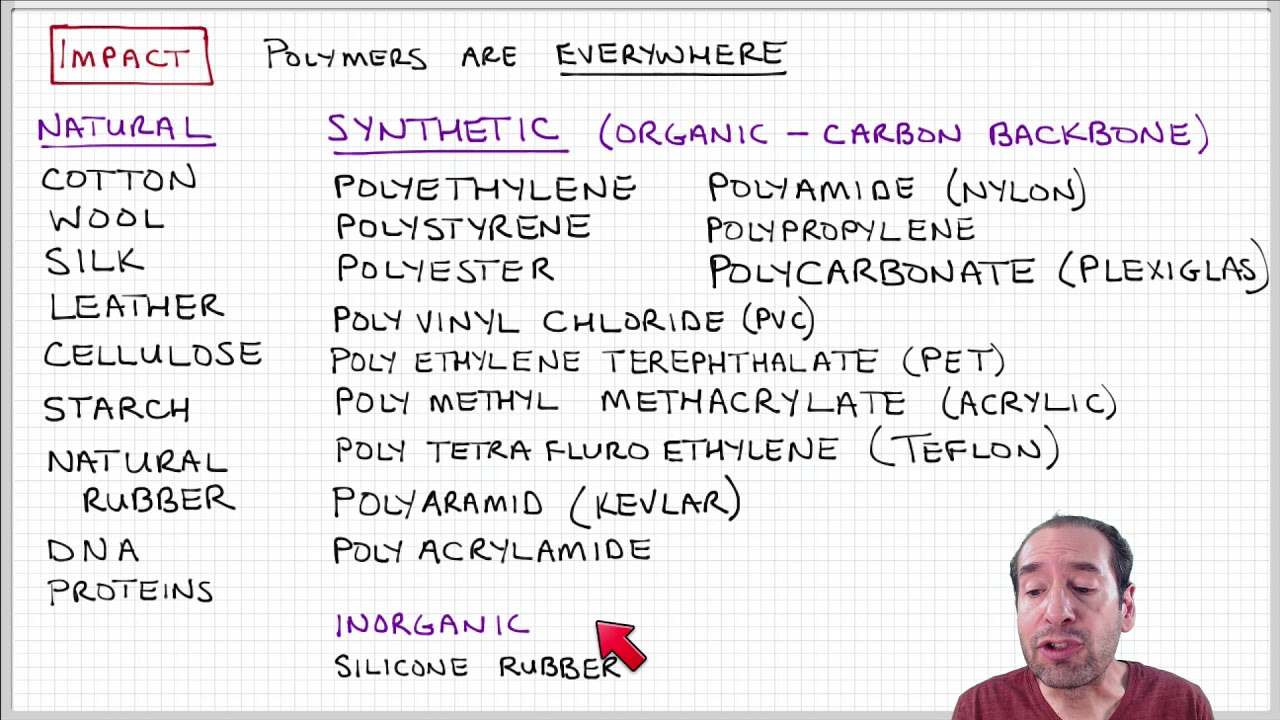 IMPACT POLYMERS ARE EVERYWHERE
NATURAL
COTTON
WOOL
SILK
LEATHER
CELLULOSE
STARCH
NATURAL
RUBBER
DNA
PROTEINS
SYNTHETIC (ORGANIC - CARBON BACKBONE)
POLYETHYLENE
POLYSTYRENE
POLYESTER
POLYAMIDE (NYLON)
POLYPROPYLENE
POLYCARBONATE (PLEXIGLAS)
POLY VINYL CHLORIDE (PVC)
POLY ETHYLENE TEREPHTHALATE (PET)
POLY METHYL METHACRYLATE (ACRYLIC)
POLY TETRA FLURO ETHYLENE (TEFLON)
POLYARAMID (KEVLAR)
POLY ACRYLAMIDE
INORGANIC
SILICONE RUBBER